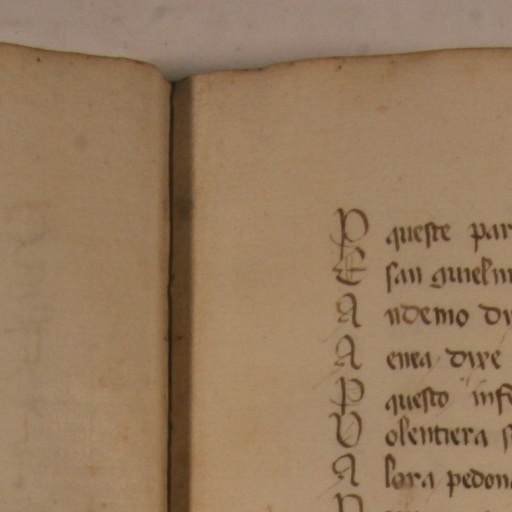 P queste par
E san guielm
A ndemo di
A enea dixe
P questo infe
V olentiera s
A lora pedon